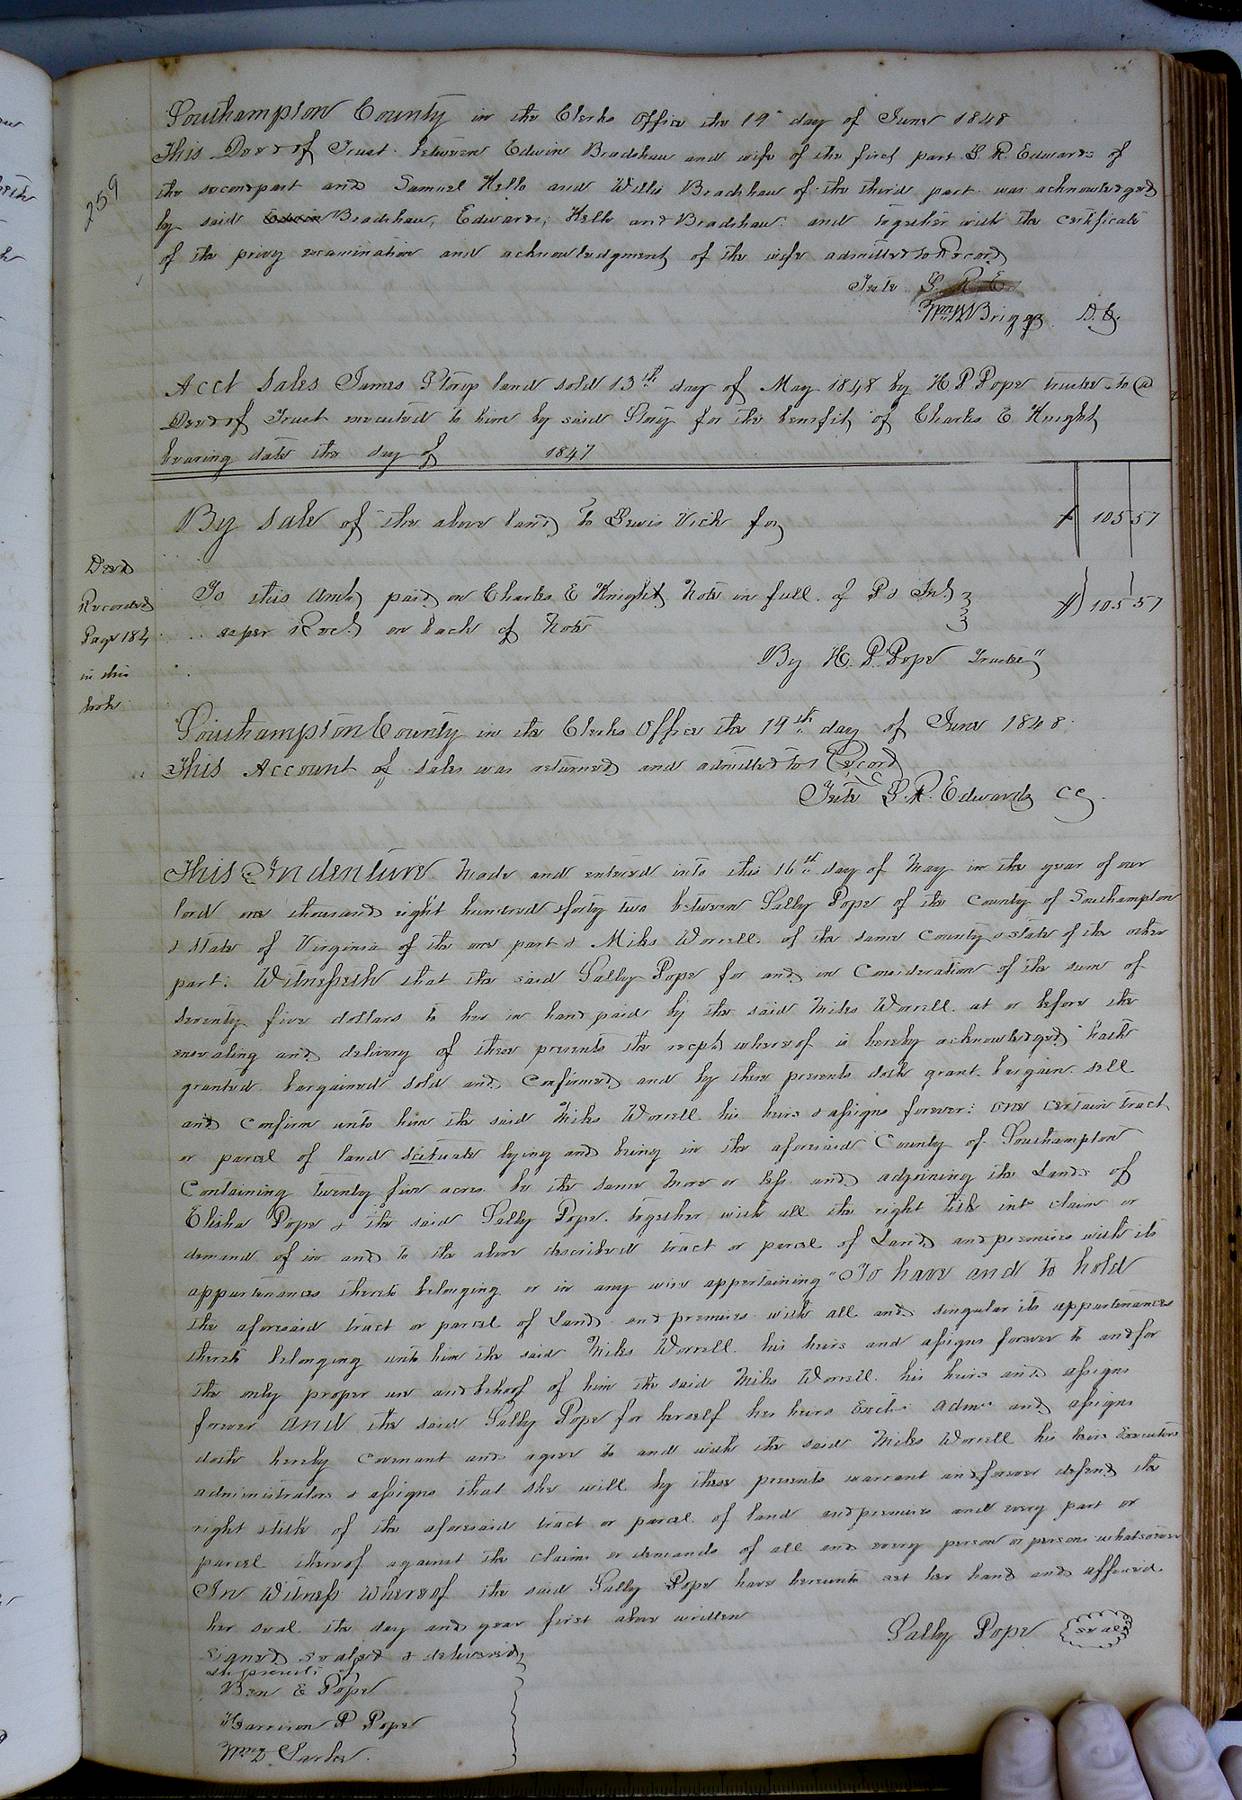 259
Southampton County in the Clerks Office the 19th day of June 1848
This Deed of Trust between Edwin Bradshaw and wife of the first part L R Edwards of
the second part and Samuel Kello and Willis Bradshaw of the third part was acknowledged
by said Edwin Bradshaw, Edwards, Kello and Bradshaw and together with the certificate
of the privy examination and acknowledgment of the wife admitted to Record
Teste L. R. E
Wm W Briggs D.C.
Acct Sales James Story land sold 13th day of May 1848 by H P Pope trustee to a
Deed of Trust executed to him by said Story for the benefit of Charles E Knight
bearing date the day of 1847
By Sale of the above land to Lewis Vick for $ 105 57
To this Amt paid on Charles E Knight Note in full of P & Int
as per Rect on back of Note $ 105 57
By H. P. Pope Trustee
Deed
Recorded
Page 184
in this
book
Southampton County in the Clerks Office the 19th day of June 1848
This Account of sales was returned and admitted to Record
Teste L. R. Edwards CC
This Indenture Made and entered into this 16th day of May in the year of our
lord one thousand eight hundred & forty two between Sally Pope of the County of Southampton
& State of Virginia of the one part & Miles Worrell of the same County & state of the other
part: Witnesseth that the said Sally Pope for and in Consideration of the sum of
Seventy five dollars to her in hand paid by the said Miles Worrell at or before the
ensealing and delivery of these presents the recpt whereof is hereby acknowledged hath
granted bargained sold and Confirmed and by these presents doth grant bargain sell
and Confirm unto him the said Miles Worrell his heirs & assigns forever: one certain tract
or parcel of land scituate lying and being in the aforesaid County of Southampton
Containing twenty five acres be the same more or less and adjoining the Lands of
Elisha Pope & the said Sally Pope. together with all the right title int claim or
demand of in and to the above described tract or parcel of Land and premises with its
appurtenances thereto belonging or in any wise appertaining "To have and to hold
the aforesaid tract or parcel of Land and premises with all and singular its appurtenances
thereto belonging unto him the said Miles Worrell his heirs and assigns forever to and for
the only proper use and behoof of him the said Miles Worrell his heirs and assigns
forever And the said Sally Pope for herself her heirs Exctr Admr and assigns
doth hereby covenant and agree to and with the said Miles Worrell his heirs Executors
administrators & assigns that she will by these presents warrant and forever defend the
right & title of the aforesaid tract or parcel of land and premises and every part or
parcel thereof against the claims or demands of all and every person or persons whatsoever
In Witness Whereof the said Sally Pope have hereunto set her hand and affixed
her seal the day and year first above written
Sally Pope seal
Signed sealed & delivered
in presence of
Ben E Pope
Harrison P Pope
Wm D